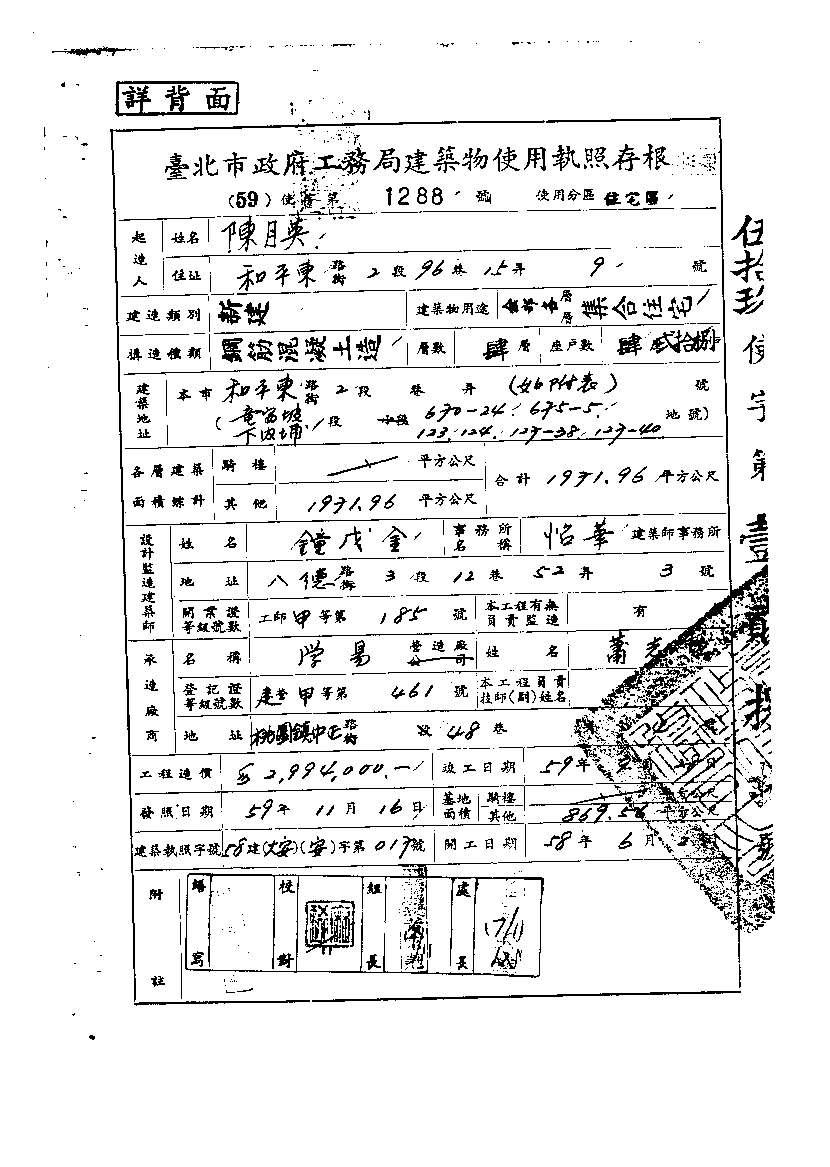 詳背面
臺北市政府工務局建築物使用執照存根
(59) 使 第 1288 號 使用分區 住宅區
起造人 姓名 陳月英
住址 和平東 路街 2 段 96 巷 15 弄 9 號
建造類別 新建 建築物用途 全部各層 集合住宅
構造種類 鋼筋混凝土造 層數 肆 層 座戶數 肆 貳拾捌
建築地址 本市 和平東 路街 2 段 巷 弄 (如附表) 號
( 段 小段 670-24、675-5、 地號)
下內埔 123、124、127-38、127-40
各層建築面積總計 騎樓 平方公尺 合計 1971.96 平方公尺
其他 1971.96 平方公尺
設計監造建築師 姓名 鐘茂金 事務所名稱 怡華 建築師事務所
地址 八德 路街 3 段 12 巷 52 弄 3 號
開業證等級號數 工師 甲 等第 185 號 本工程有無負責監造 有
承造廠商 名稱 学昜 營造廠公司 姓名 蕭
登記證等級號數 建營 甲 等第 461 號 本工程負責技師(副)姓名
地址 桃園鎮中正 路街 段 48 巷
工程造價 2,994,000.- 竣工日期 59 年
發照日期 59 年 11 月 16 日 基地面積 騎樓 平方公尺
其他 869.56 平方公尺
建築執照字號 58 建(大安)(安)字第 017 號 開工日期 58 年 6 月
附註 繕寫 校對 組長 處長 17/11
伍拾玖使字第壹貳捌